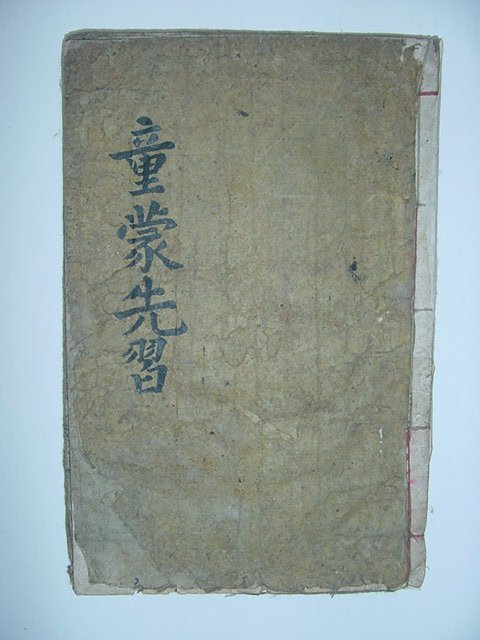 童蒙先習